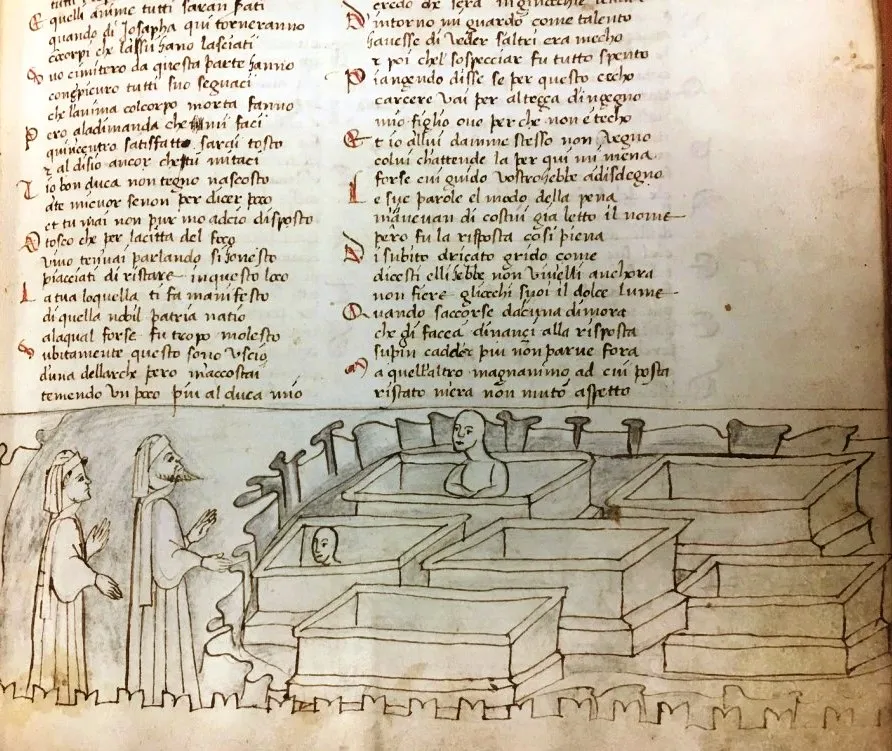 E quelli anime tutti saran fati
quando di Josapha qui torneranno
coi corpi che lassu hano lasciati
Suo cimitero da questa parte hanno
con epicuro tutti suo seguaci
che lanima colcorpo morta fanno
Pero aladimanda che mi faci
quincentro satisfatto sarai tosto
z al disio ancor che tu mi taci
Io bon duca non tegno nascosto
a te mio cuor se non per dicer poco
et tu mai non pur mo adcio disposto
O tosco che per lacitta del foco
vivo ten vai parlando si honesto
piacciati di ristare inquesto loco
La tua loquella ti fa manifesto
di quella nobil patria natio
alaqual forse fu tropo molesto
Subitamente questo sono uscio
duna dellarche pero maccostai
temendo un poco piu al duca mio
credo che sera in
Dintorno mi guardo come talento
havesse di veder saltri era mecho
z poi chel sospecciar fu tutto spento
Piangendo disse se per questo cecho
carcere vai per altecça dingegno
mio figlio ove per che non e techo
Et io allui da me stesso non vegno
colui chattende la per qui mi mena
forse cui guido vostro hebbe adisdegno
Le sue parole el modo della pena
mavevan di costui gia letto il nome
pero fu la risposta cosi piena
Di subito driçato grido come
dicesti elli hebbe non vivelli anchora
non fiere gliocchi suoi il dolce lume
Quando saccorse dalcuna dimora
che gi facea dinançi alla risposta
supin cadder piu non parve fora
Ma quellaltro magnanimo ad cui posta
ristato mera non muto aspetto